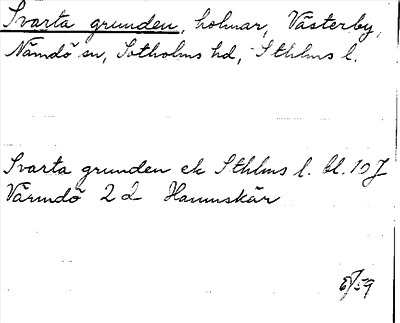 Svarta grunden, holmar, Västerby,
Nämdö sn, Sotholms hd, Sthlms l.
Svarta grunden ek Sthlms l. bl. 10 J
Värmdö 2 d Hamnskär
59